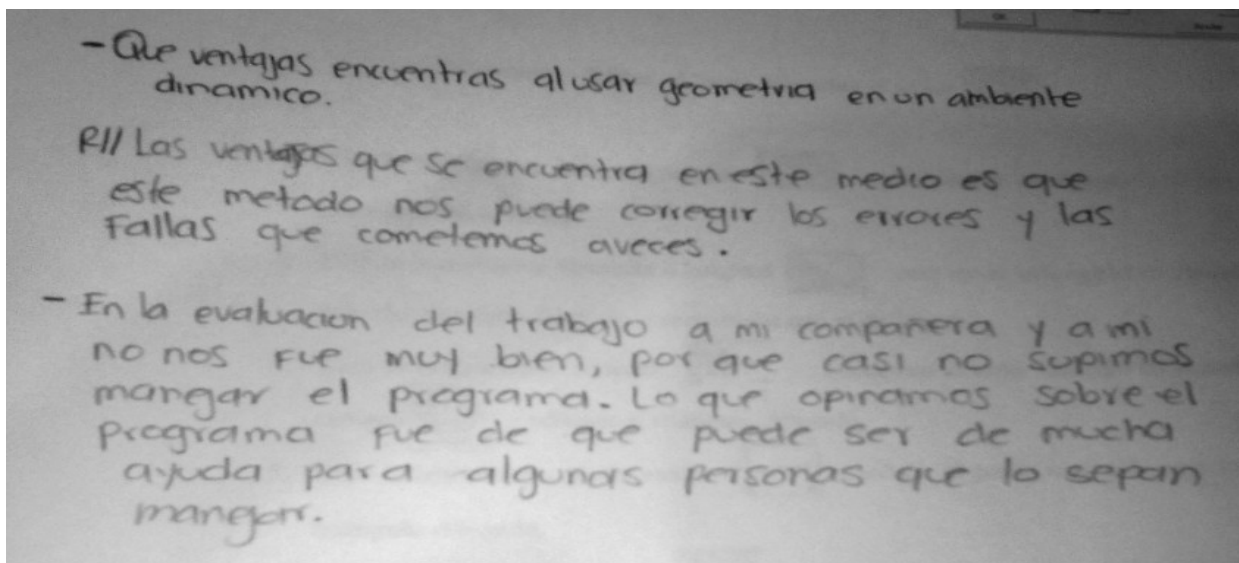 - Que ventajas encuentras al usar geometria en un ambiente
dinamico.
R// Las ventajas que se encuentra en este medio es que
este metodo nos puede corregir los errores y las
Fallas que cometemos aveces.
- En la evaluacion del trabajo a mi compañera y a mi
no nos fue muy bien, por que casi no supimos
mangar el programa. Lo que opinamos sobre el
programa fue de que puede ser de mucha
ayuda para algunas personas que lo sepan
mangar.